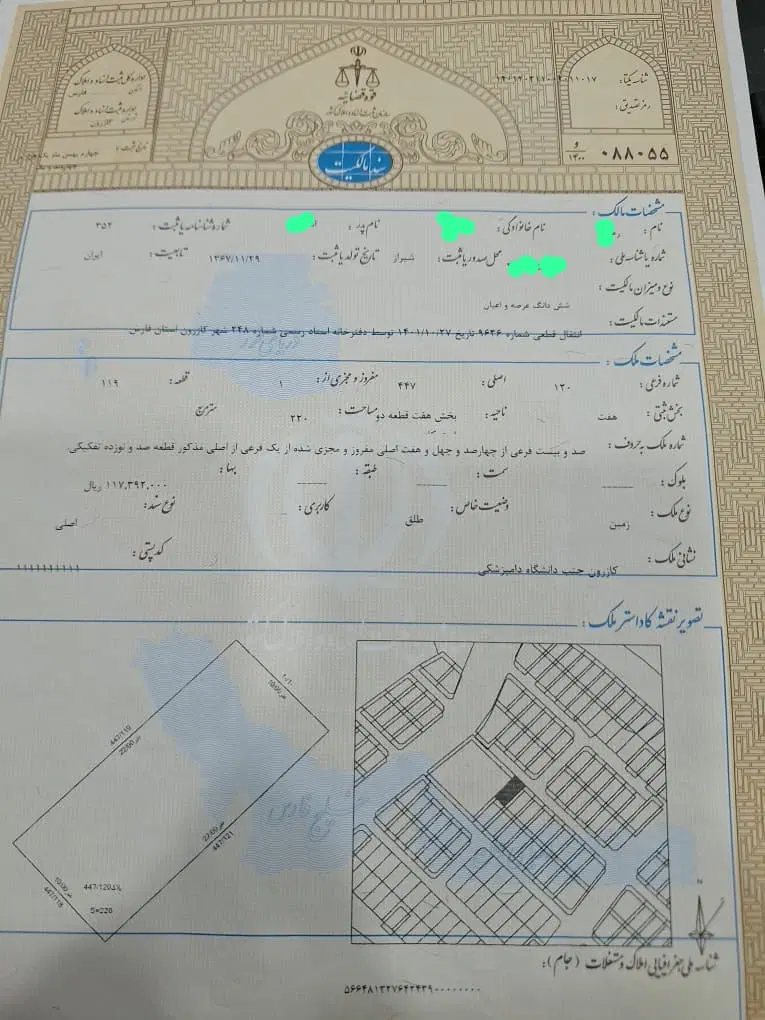 قوه قضائیه
سازمان ثبت اسناد و املاک کشور
اداره کل ثبت اسناد و املاک
استان فارس
اداره ثبت اسناد و املاک
شهرستان کازرون
تاریخ ثبت :
چهارم بهمن ماه یک هزار و
چهارصد و یک
شناسه یکتا :
رمز تصدیق :
۰۸۸۰۵۵ و ۱۴۰۰
سند مالکیت
مشخصات مالک :
نام : نام خانوادگی : نام پدر : شماره شناسنامه یا ثبت : ۳۵۲
شماره یا شناسه ملی : محل صدور یا ثبت : شیراز تاریخ تولد یا ثبت : ۱۳۶۷/۱۱/۲۹ تابعیت : ایران
نوع و میزان مالکیت :
شش دانگ عرصه و اعیان
مستندات مالکیت :
انتقال قطعی شماره ۹۶۳۶ تاریخ ۱۴۰۱/۱۰/۲۷ توسط دفترخانه اسناد رسمی شماره ۲۴۸ شهر کازرون استان فارس
مشخصات ملک :
شماره فرعی : ۱۲۰ اصلی : ۴۴۷ مفروز و مجزی از : ۱ قطعه : ۱۱۹
بخش ثبتی : هفت ناحیه : بخش هفت قطعه دو مساحت : ۲۲۰ متر مربع
شماره ملک به حروف : صد و بیست فرعی از چهارصد و چهل و هفت اصلی مفروز و مجزی شده از یک فرعی از اصلی مذکور قطعه صد و نوزده تفکیکی.
بلوک : سمت : طبقه : بها : ۱۱۷,۳۹۲,۰۰۰ ریال
نوع ملک : زمین وضعیت خاص : طلق کاربری : نوع سند : اصلی
نشانی ملک : کازرون جنب دانشگاه دامپزشکی کد پستی : ۱۱۱۱۱۱۱۱۱۱
تصویر نقشه کاداستر ملک :
دریای خزر
خلیج فارس
447/119
22/00 متر
10/00 متر
22/00 متر
447/121
10/00 متر
447/118
پلاک 447/120
S=220
شناسه ملی جغرافیایی املاک و مستغلات (جام) :